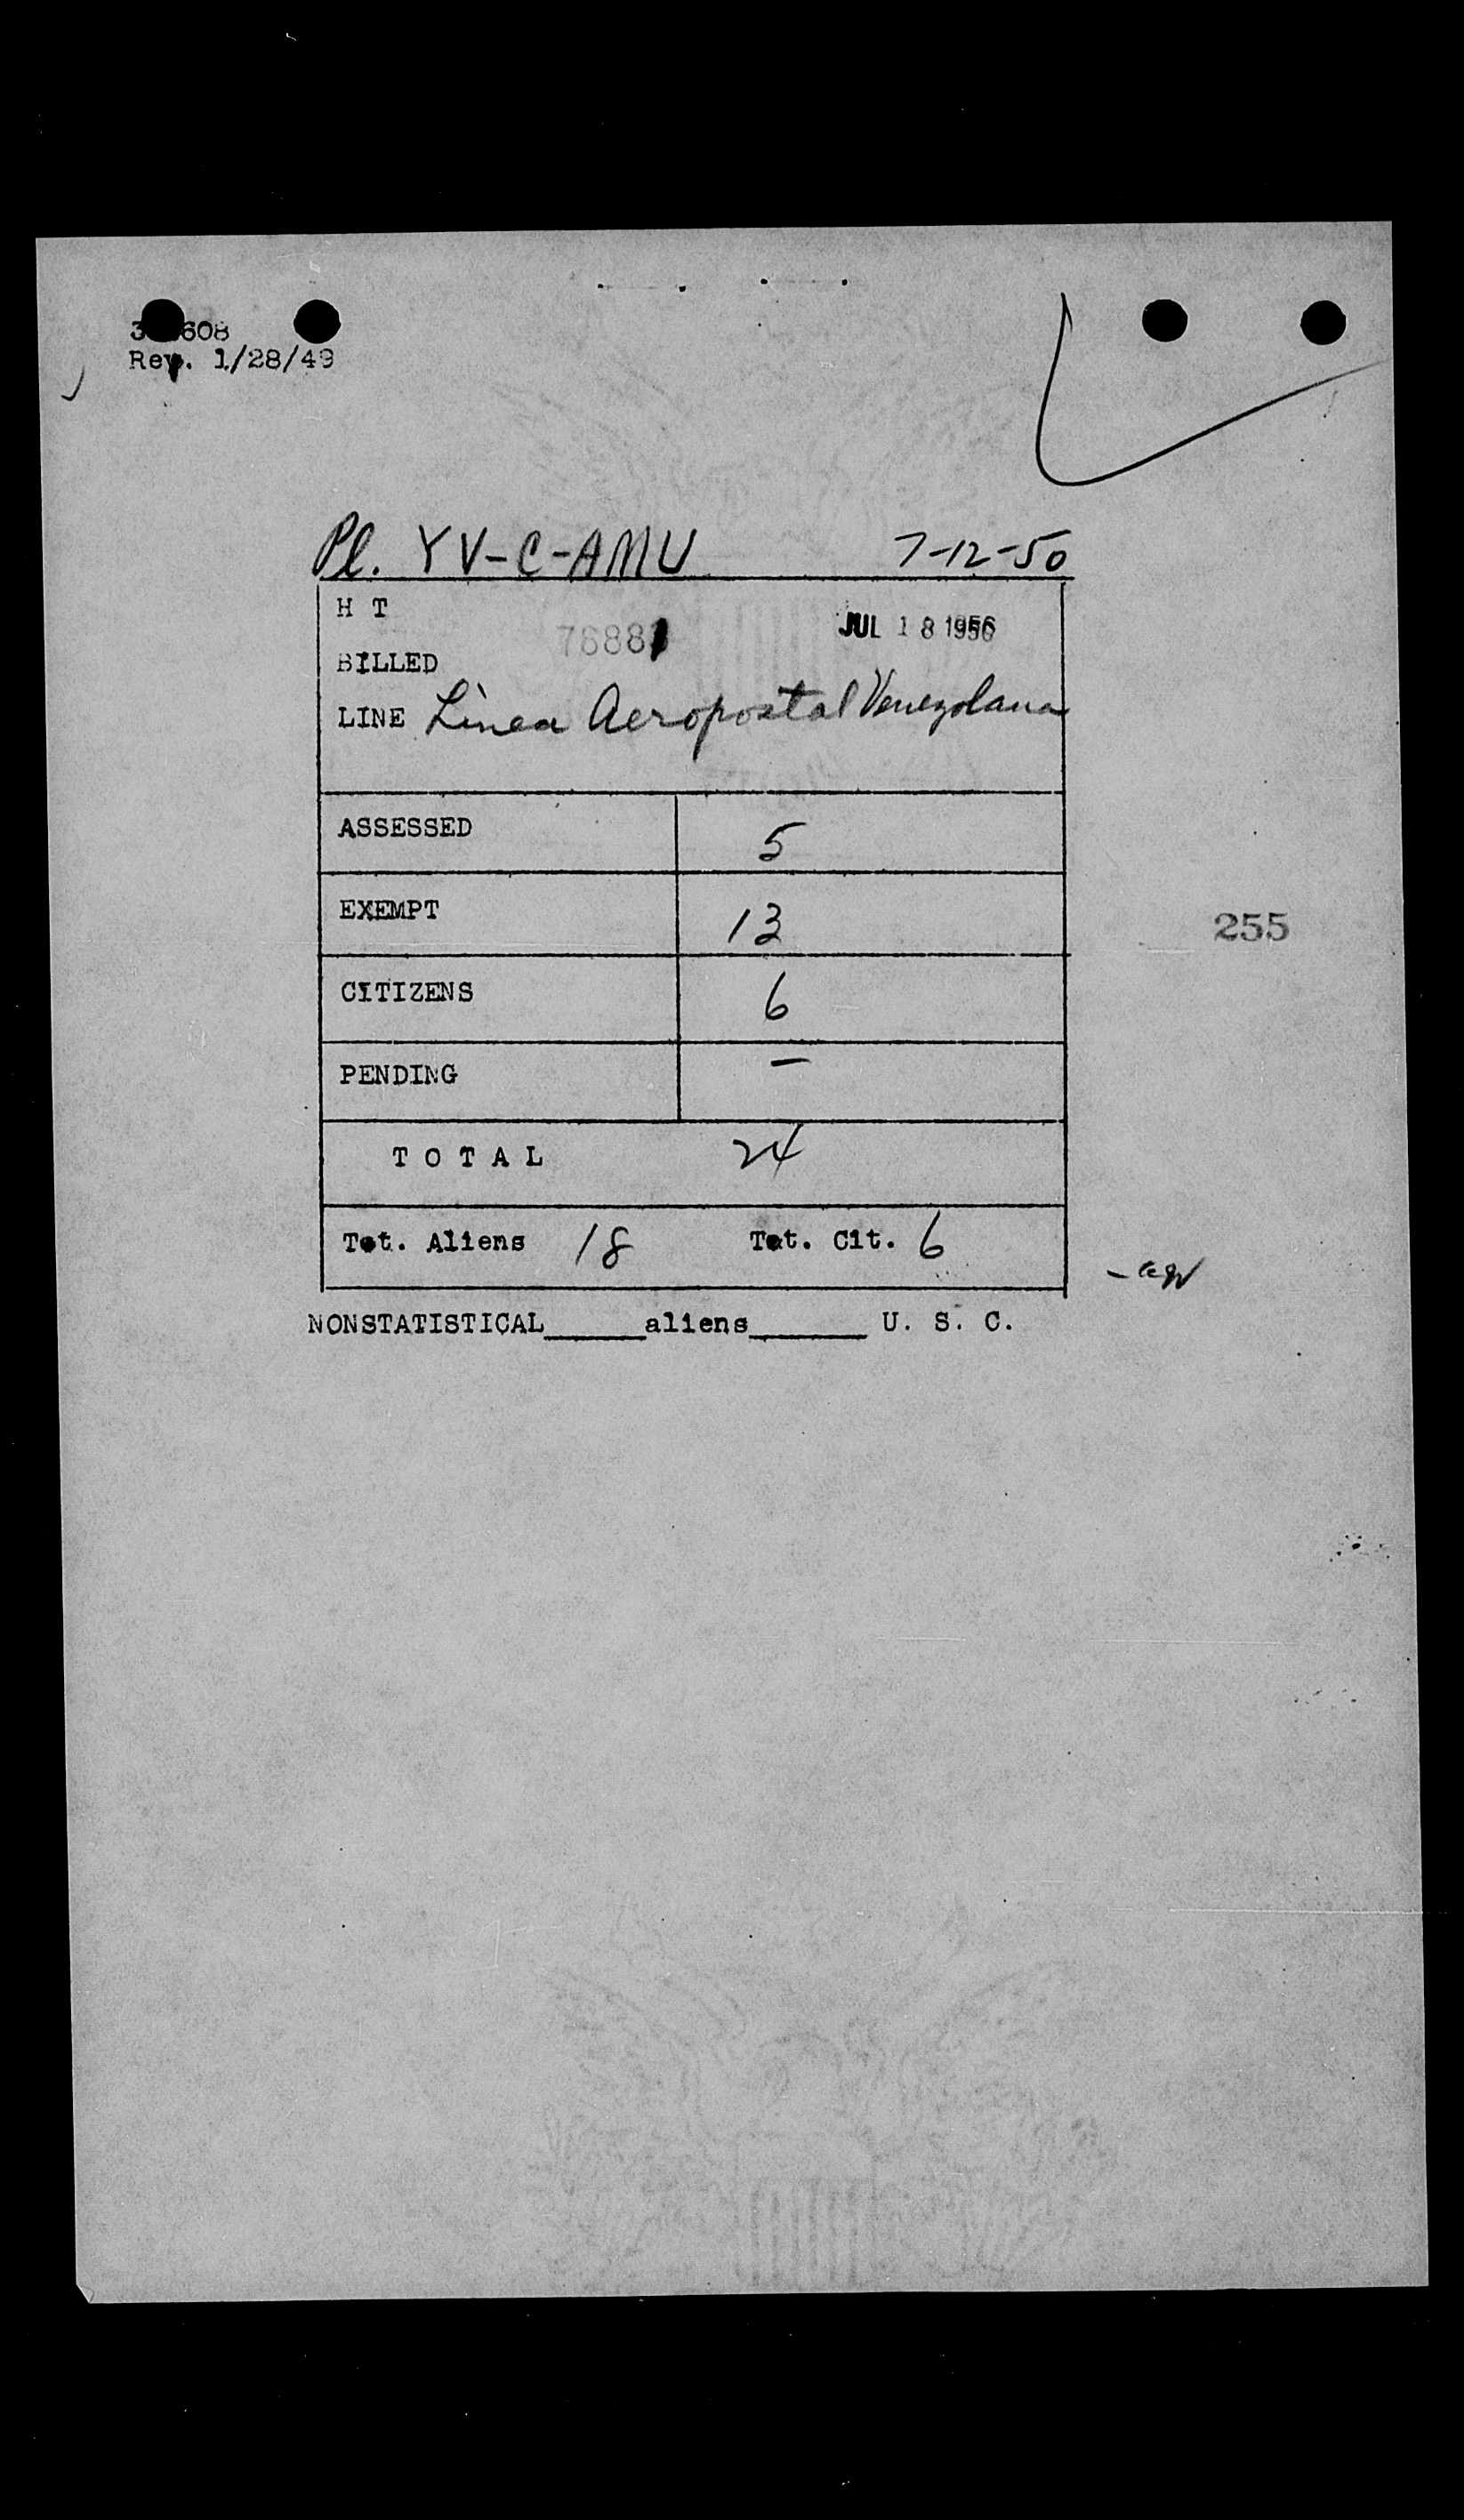 Rev. 1/28/49
Pl. YV-C-AMU 7-12-50
H T
JUL 18
BILLED
LINE Linea Aeropostal Venezolana
ASSESSED 5
EXEMPT 13
255
CITIZENS 6
PENDING -
TOTAL 24
Tot. Aliens 18 Tot. Cit. 6
NONSTATISTICAL______aliens_______ U. S. C.